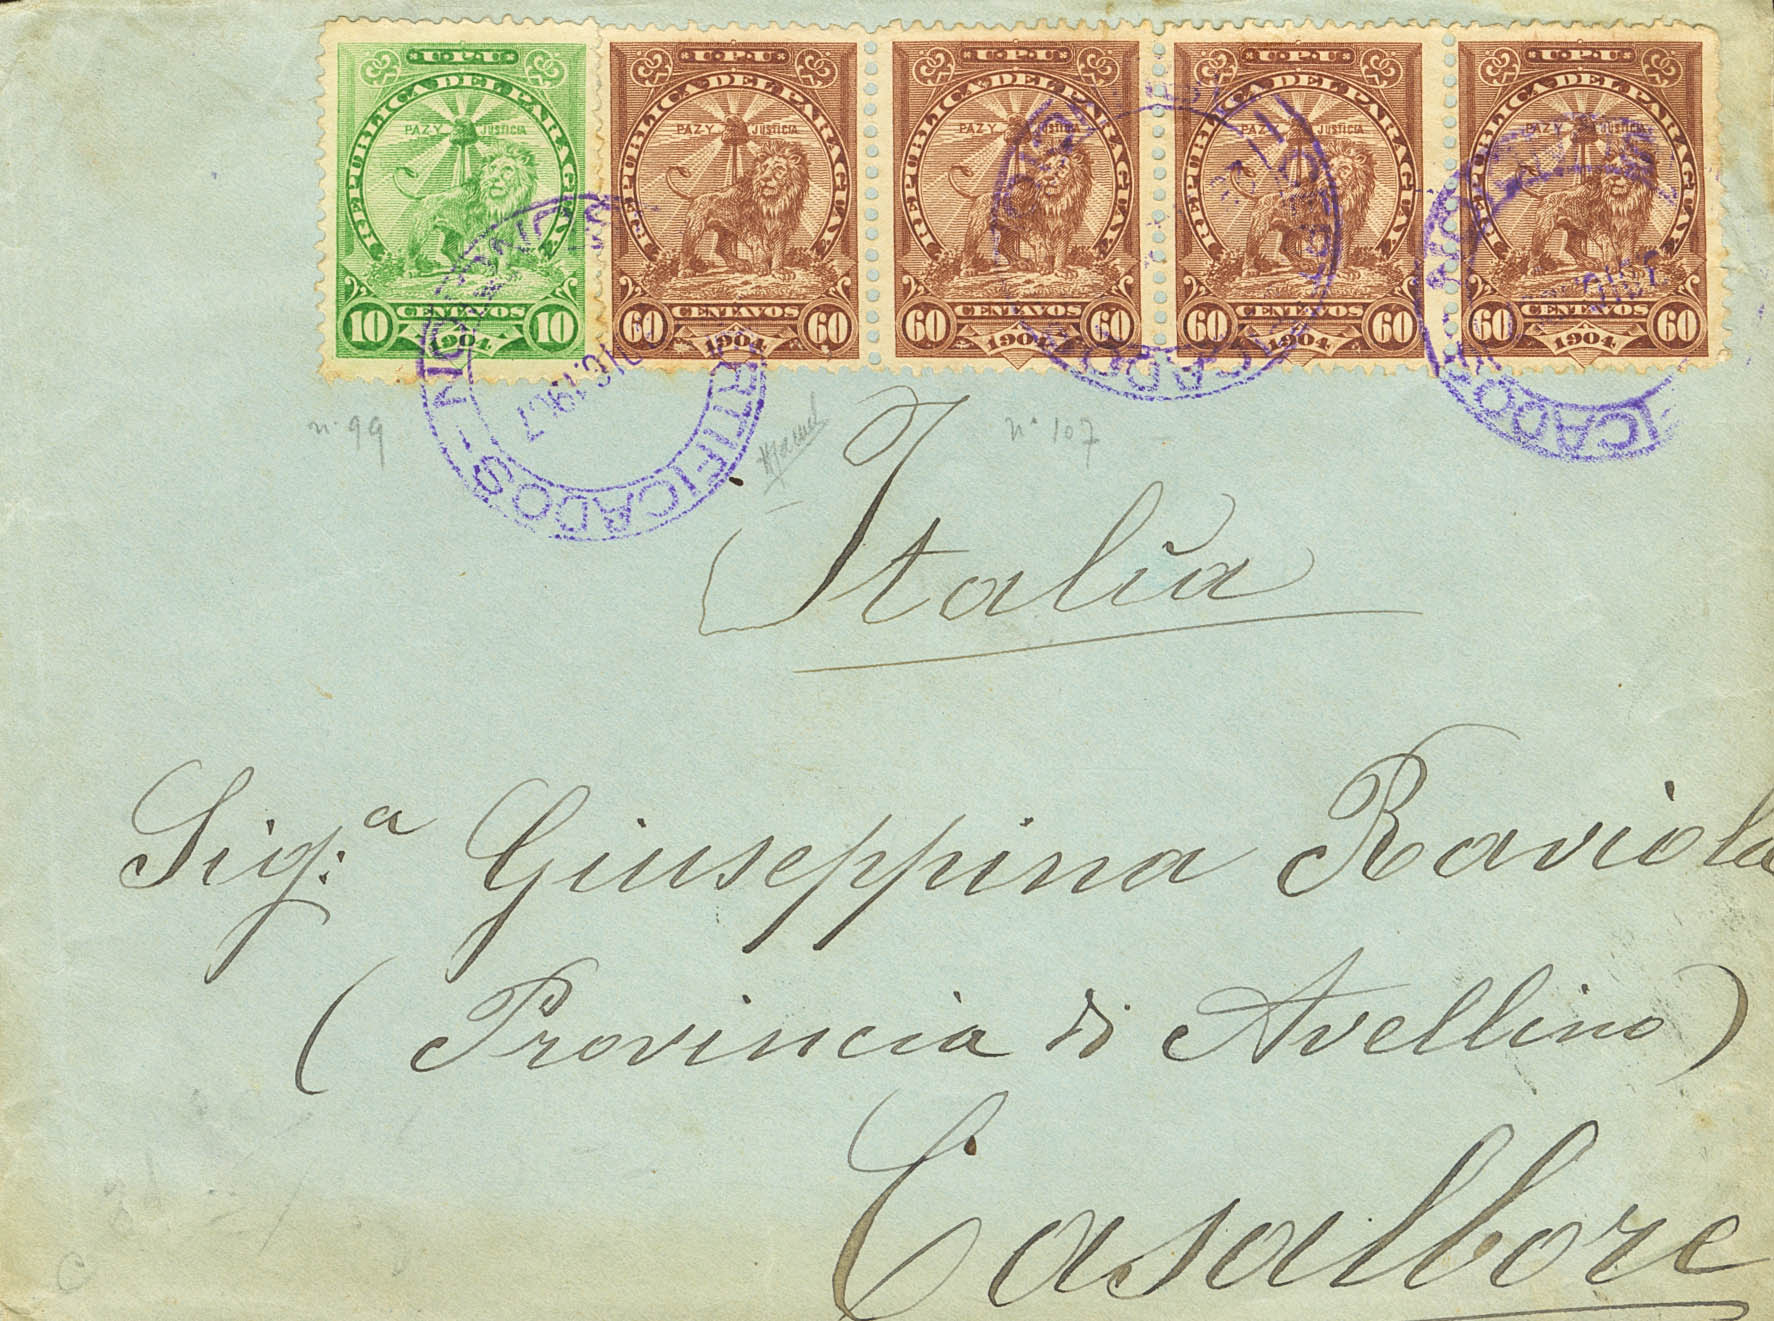 U.P.U U.P.U U.P.U U.P.U U.P.U
REPUBLICA DEL PARAGUAY REPUBLICA DEL PARAGUAY REPUBLICA DEL PARAGUAY REPUBLICA DEL PARAGUAY REPUBLICA DEL PARAGUAY
PAZ Y JUSTICIA PAZ Y JUSTICIA PAZ Y JUSTICIA PAZ Y JUSTICIA PAZ Y JUSTICIA
10 CENTAVOS 10 60 CENTAVOS 60 60 CENTAVOS 60 60 CENTAVOS 60 60 CENTAVOS 60
1904 1904 1904 1904 1904
RTIFICADOS
CADO
ICADOS
n. 99
n. 107
Italia
Sig.a Giuseppina Raviola
(Provincia di Avellino)
Casalbore